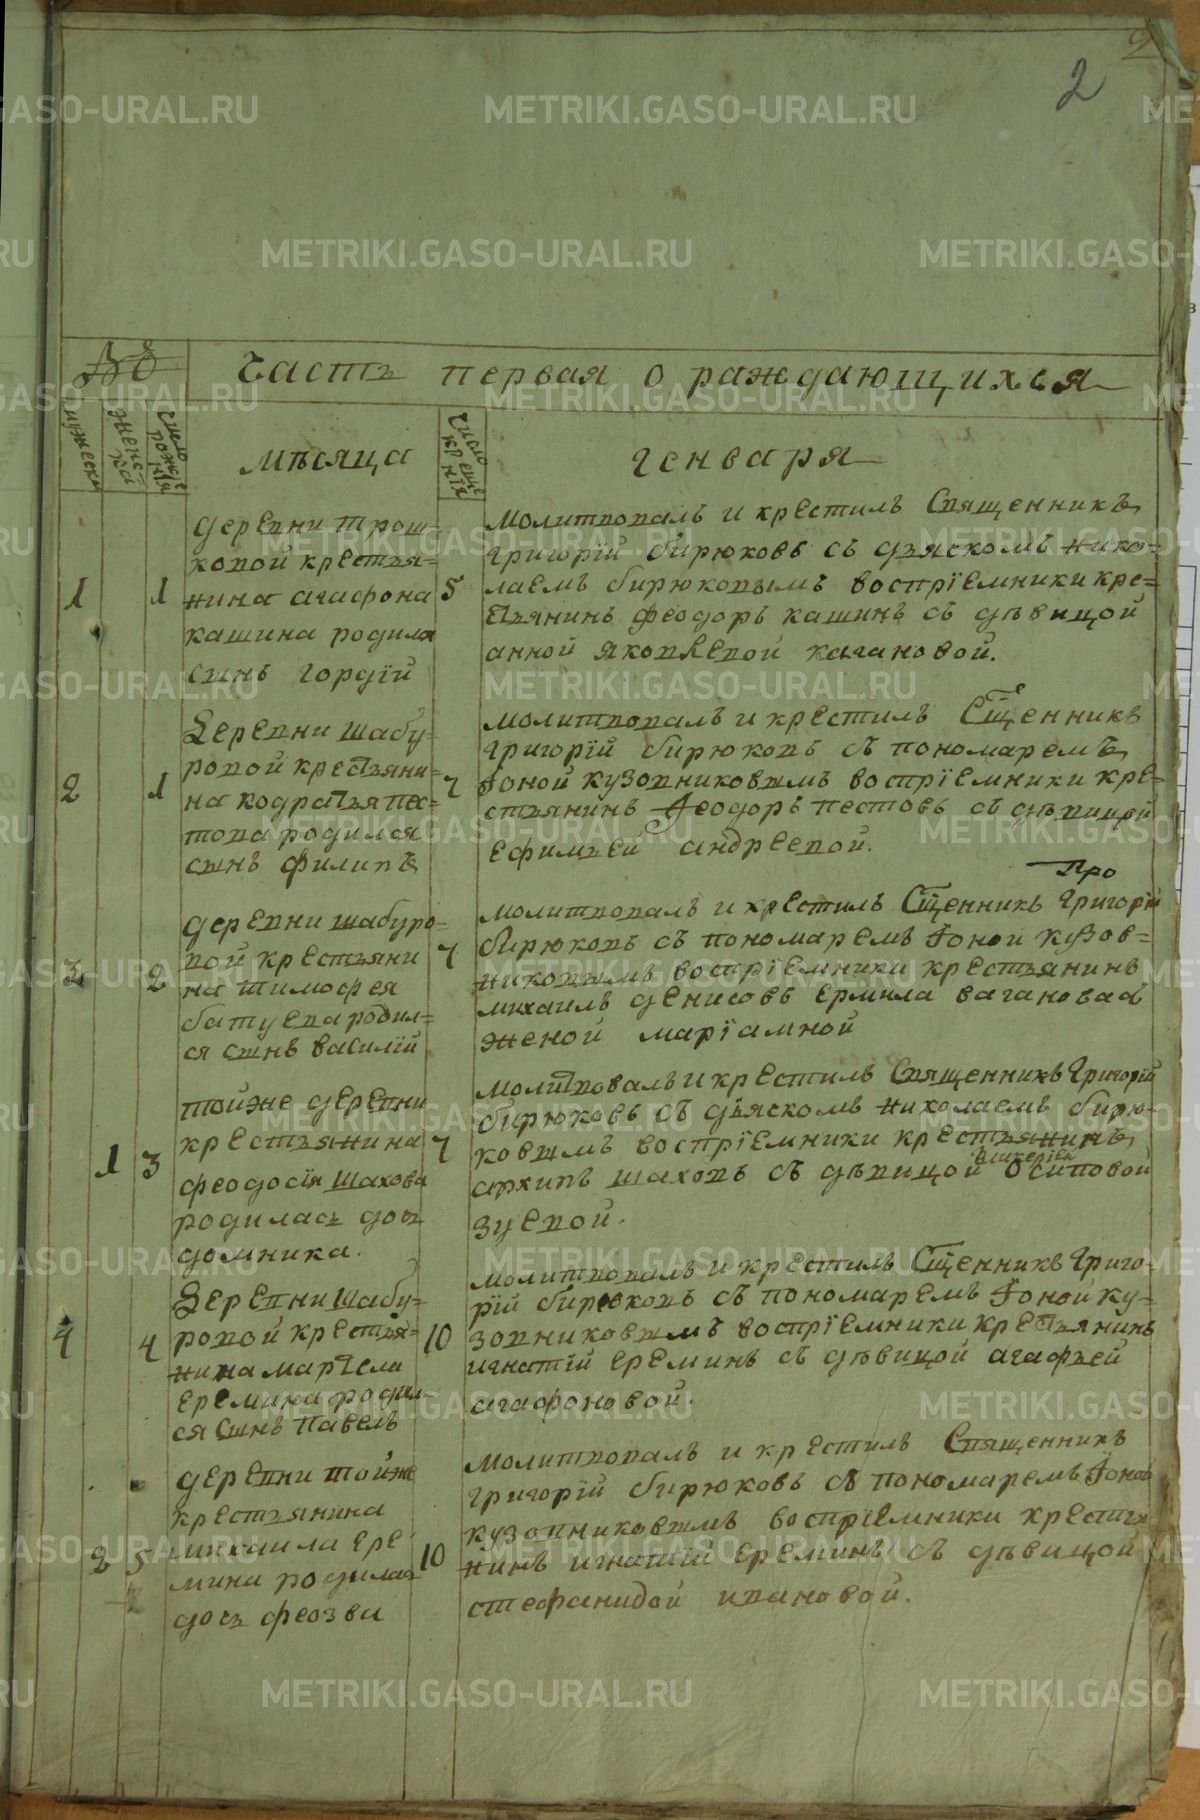 2
№
Часть первая о раждающихся
мужеска
женска
число рожденія
Мѣсяца
число крещенія
Генваря
1 1 5
деревни трош-
ковой крестья-
нина агафона
кашина родился
сынъ гордій
молитвовалъ и крестилъ Священникъ
григорій бирюковъ съ дьяскомъ нико-
лаемъ бирюковымъ воспріемники кре-
стьянинъ феодоръ кашинъ съ дѣвицой
анной яковлевой кагановой.
2 1 7
Деревни шабу-
ровой крестьяни-
на кодратья пес-
това родился
сынъ филипъ
молитвовалъ и крестилъ Сщенникъ
григорій бирюковъ съ пономаремъ
Іоной кузовниковымъ воспріемники кре-
стьянинъ Феодоръ пестовъ съ дѣвицой
ефимьей андреевой.
3 2 7
деревни шабуро-
вой крестьяни
на тимофея
батуева родил-
ся сынъ василій
Про
молитвовалъ и крестилъ Сщенникъ Григорій
бирюковъ съ пономаремъ Іоной кузов-
никовымъ воспріемники крестьянинъ
михаилъ денисовъ ермила ваганова съ
женой маріамной
1 3 7
тойже деревни
крестьянина
феодосія шахова
родилась дочь
домника.
молитвовалъ и крестилъ Священникъ Григорій
бирюковъ съ дьяскомъ николаемъ бирю-
ковымъ воспріемники крестьянинъ
архипъ шаховъ съ дѣвицой осиповой
зуевой.
4 4 10
Деревни шабу-
ровой крестья-
нина маркела
еремина родил-
ся сынъ павелъ
молитвовалъ и крестилъ Сщенникъ Григо-
рій бирюковъ съ пономаремъ Іоной ку-
зовниковымъ воспріемники крестьянинъ
игнатій ереминъ съ дѣвицой агафьей
агафоновой.
2 5 10
деревни тойже
крестьянина
михаила ере
мина родилась
дочь феозва
молитвовалъ и крестилъ Священникъ
григорій бирюковъ съ пономаремъ Іоной
кузовниковымъ воспріемники крестья
нинъ игнатій ереминъ съ дѣвицой
стефанидой ивановой.
METRIKI.GASO-URAL.RU